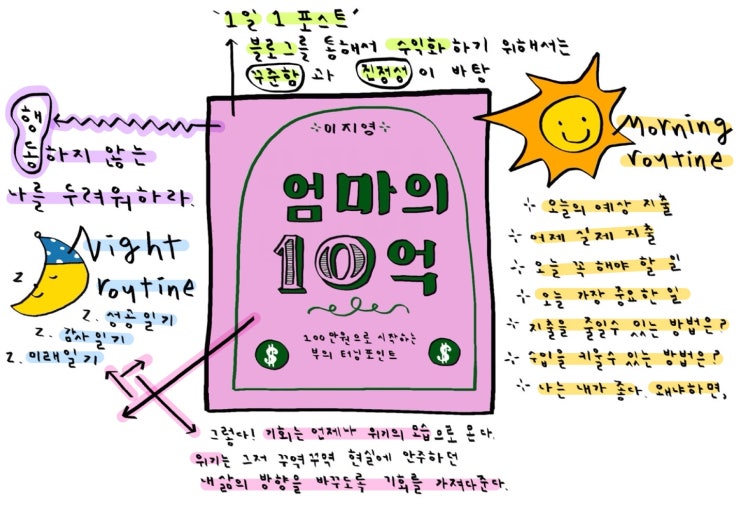 '1일 1 포스트'
블로그를 통해서 수익화하기 위해서는
꾸준함 과 진정성 이 바탕
행동하지 않는
나를 두려워하라.
이지영
엄마의
10억
200만원으로 시작하는
부의 터닝포인트
$ $
Morning
routine
오늘의 예상 지출
어제 실제 지출
오늘 꼭 해야 할 일
오늘 가장 중요한 일
지출을 줄일수 있는 방법은?
수입을 키울수 있는 방법은?
나는 내가 좋다. 왜냐하면,
Night
routine
z. 성공일기
z. 감사일기
z. 미래일기
그렇다! 기회는 언제나 위기의 모습으로 온다.
위기는 그저 꾸역꾸역 현실에 안주하던
내 삶의 방향을 바꾸도록 기회를 가져다준다.